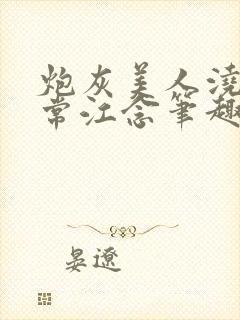 炮灰美人浇
常江念笔趣
晏遼